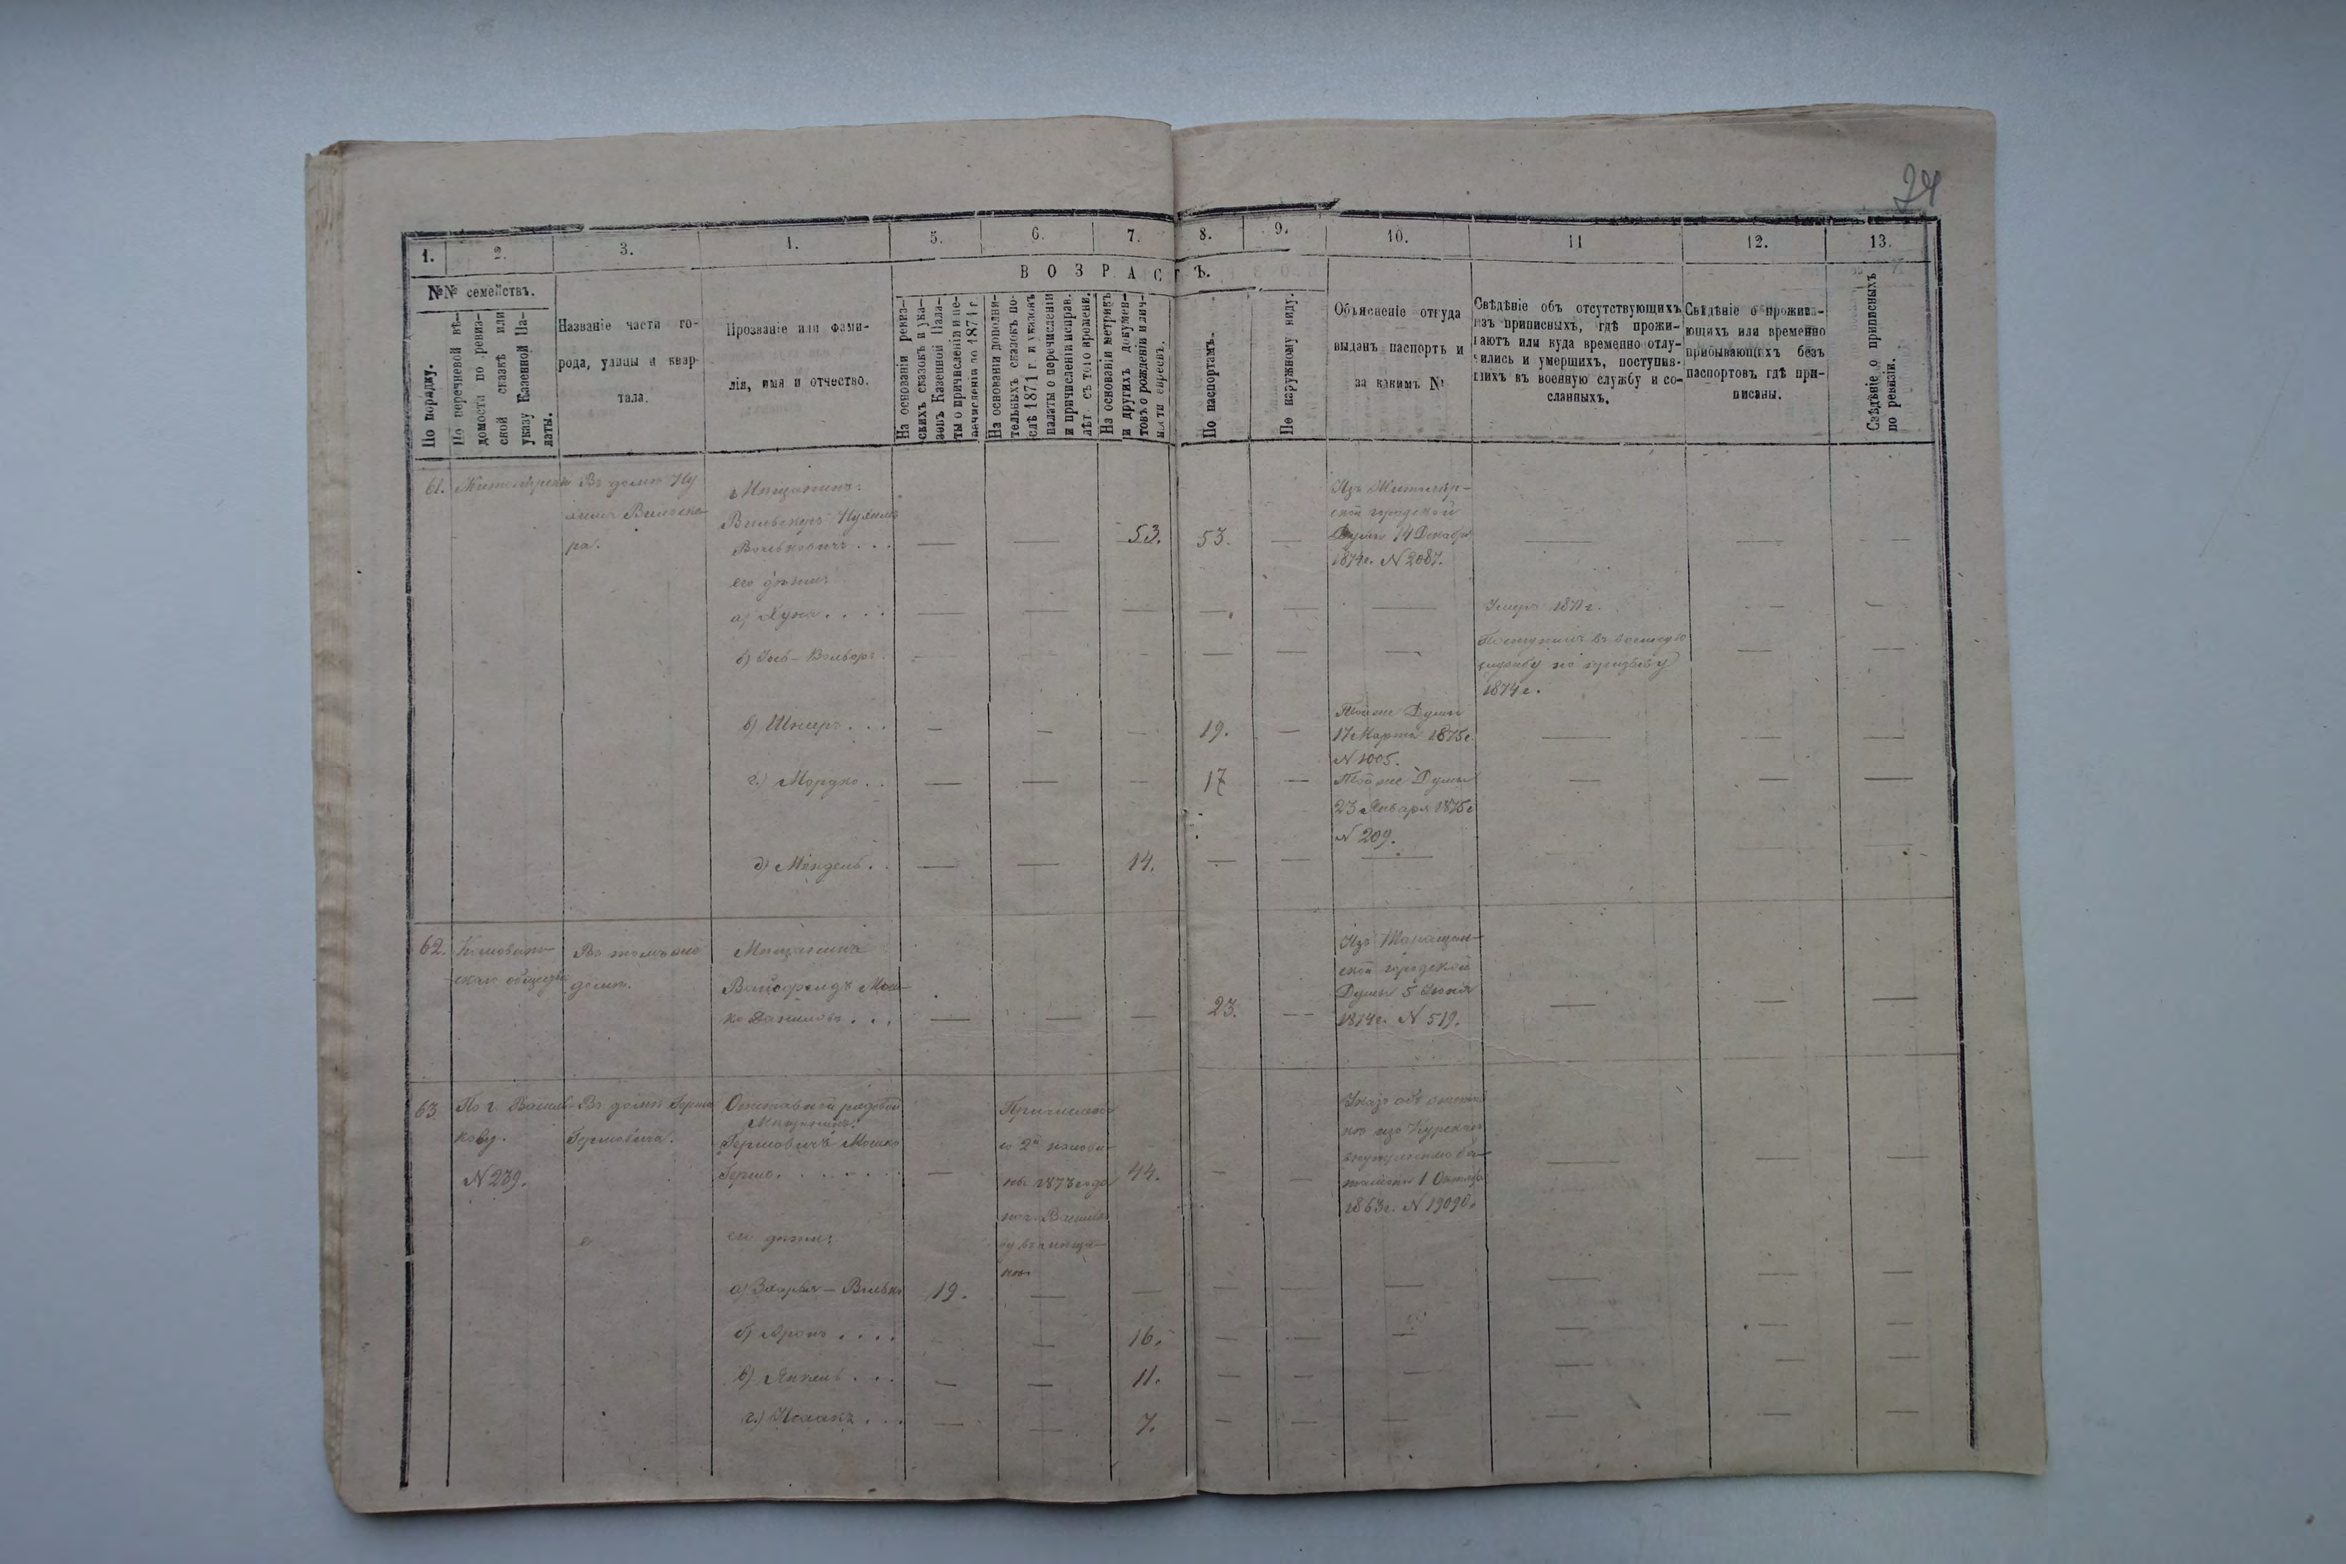 24
1.
2.
3.
4.
5.
6.
7.
8.
9.
10.
11
12.
13.
ВОЗРАСТЪ.
№№ семействъ.
По порядку.
По перечневой вѣ-
домости по ревиз-
ской сказкѣ или
указу Казенной Па-
латы.
Названіе части го-
рода, улицы и квар-
тала.
Прозваніе или фами-
лія, имя и отчество.
На основаніи ревиз-
скихъ сказокъ и ука-
зовъ Казенной Пала-
ты о причисленіи и не-
речисленіи до 1871 г.
На основаніи дополни-
тельныхъ сказокъ по-
слѣ 1871 г. и указовъ
палаты о перечисленіи
и причисленіи исправ.
лѣт съ того времени.
На основаніи метрикъ
и других докумен-
товъ о рожденіи и лич-
ности евреевъ.
По паспортамъ.
По наружному виду.
Объясненіе откуда
выданъ паспортъ и
за какимъ №
Свѣдѣніе объ отсутствующихъ
изъ приписныхъ, гдѣ прожи-
ваютъ или куда временно отлу-
чились и умершихъ, поступив-
шихъ въ военную службу и со-
сланныхъ.
Свѣдѣніе о прожива-
ющихъ или временно
прибывающихъ безъ
паспортовъ гдѣ при-
писаны.
Свѣдѣніе о приписныхъ
по ревизіи.
61.
Въ домѣ Ну
ра.
Мѣщанинъ
Вольковичъ . . .
53.
53.
Изъ Житомір-
ской городской
Думы 14 Декабря
1874г. N 2087.
его дѣти:
а)
Умеръ 1871г.
б)
Поступилъ въ военную
службу по призыву
1874г.
в) Шмеръ . . .
19.
Той же Думы
17 Марта 1875г.
N 1005.
г.) Мордко . .
17
Той же Думы
23 Января 1875г
N 209.
д) Мендель . .
14.
62.
скаго общества
Въ томъ же
домѣ.
Мѣщанинъ
Вайсфельдъ Мош-
ко . . .
23.
Изъ Таращан-
ской городской
Думы 5 Іюня
1874г. N 519.
63
По г. Василь-
кову.
N 239.
Въ домѣ Герша
Гершовича.
Отставной рядовой
Мѣщанинъ.
Гершовичъ Мошко
Гершо . . . . . . .
Причисленъ
со 2й полови-
ны 1873 года
по г. Василь-
44.
Указъ объ отстав-
кѣ изъ Курскаго
внутренняго ба-
таліона 1 Октября
1863г. N 19090.
его дѣти:
а) Захарья - Волько
19.
б) Аронъ . . . .
16.
в) Янкель . . .
11.
г.) . . .
7.